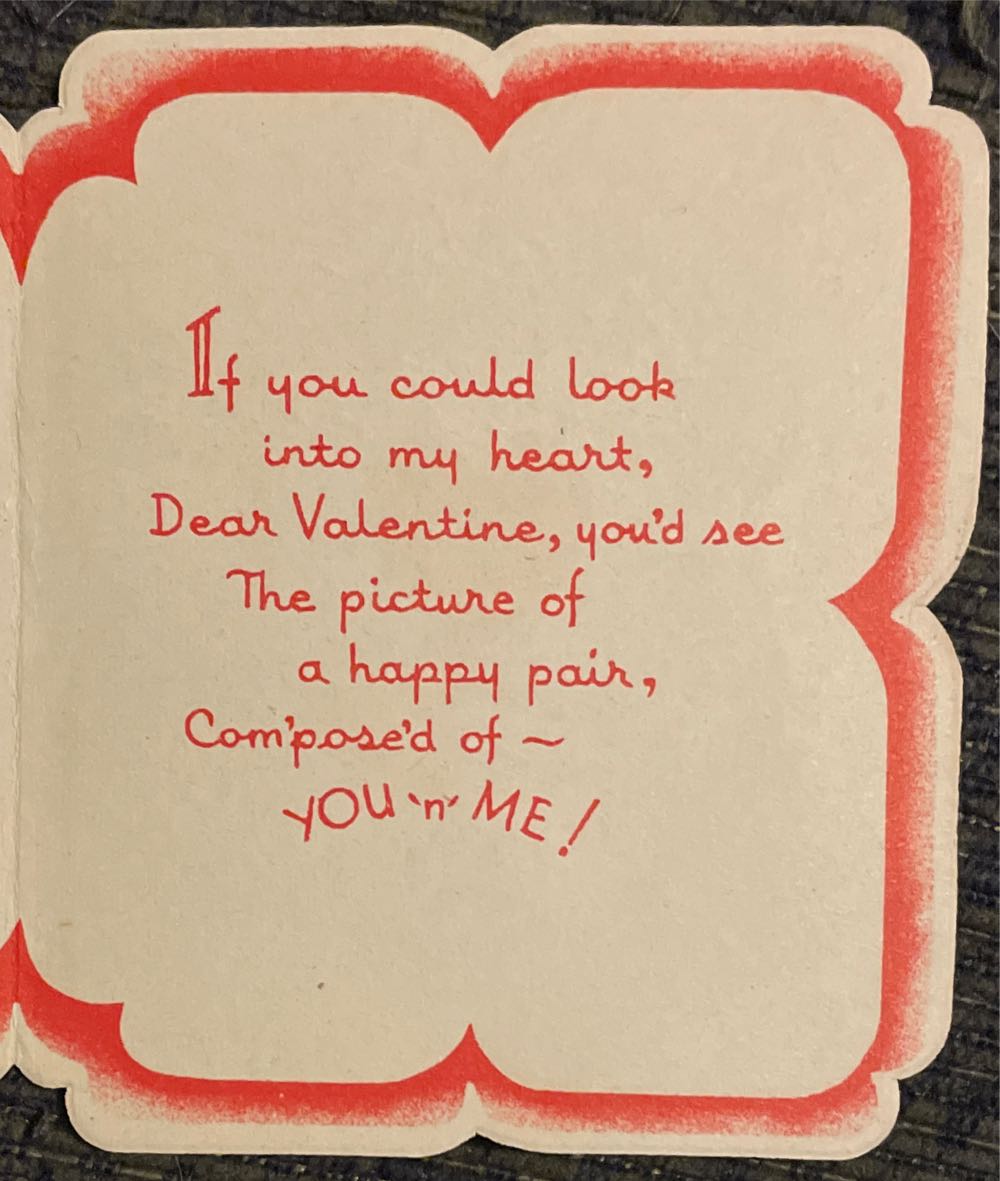 If you could look
into my heart,
Dear Valentine, you'd see
The picture of
a happy pair,
Com'pose'd of ~
YOU 'n' ME!